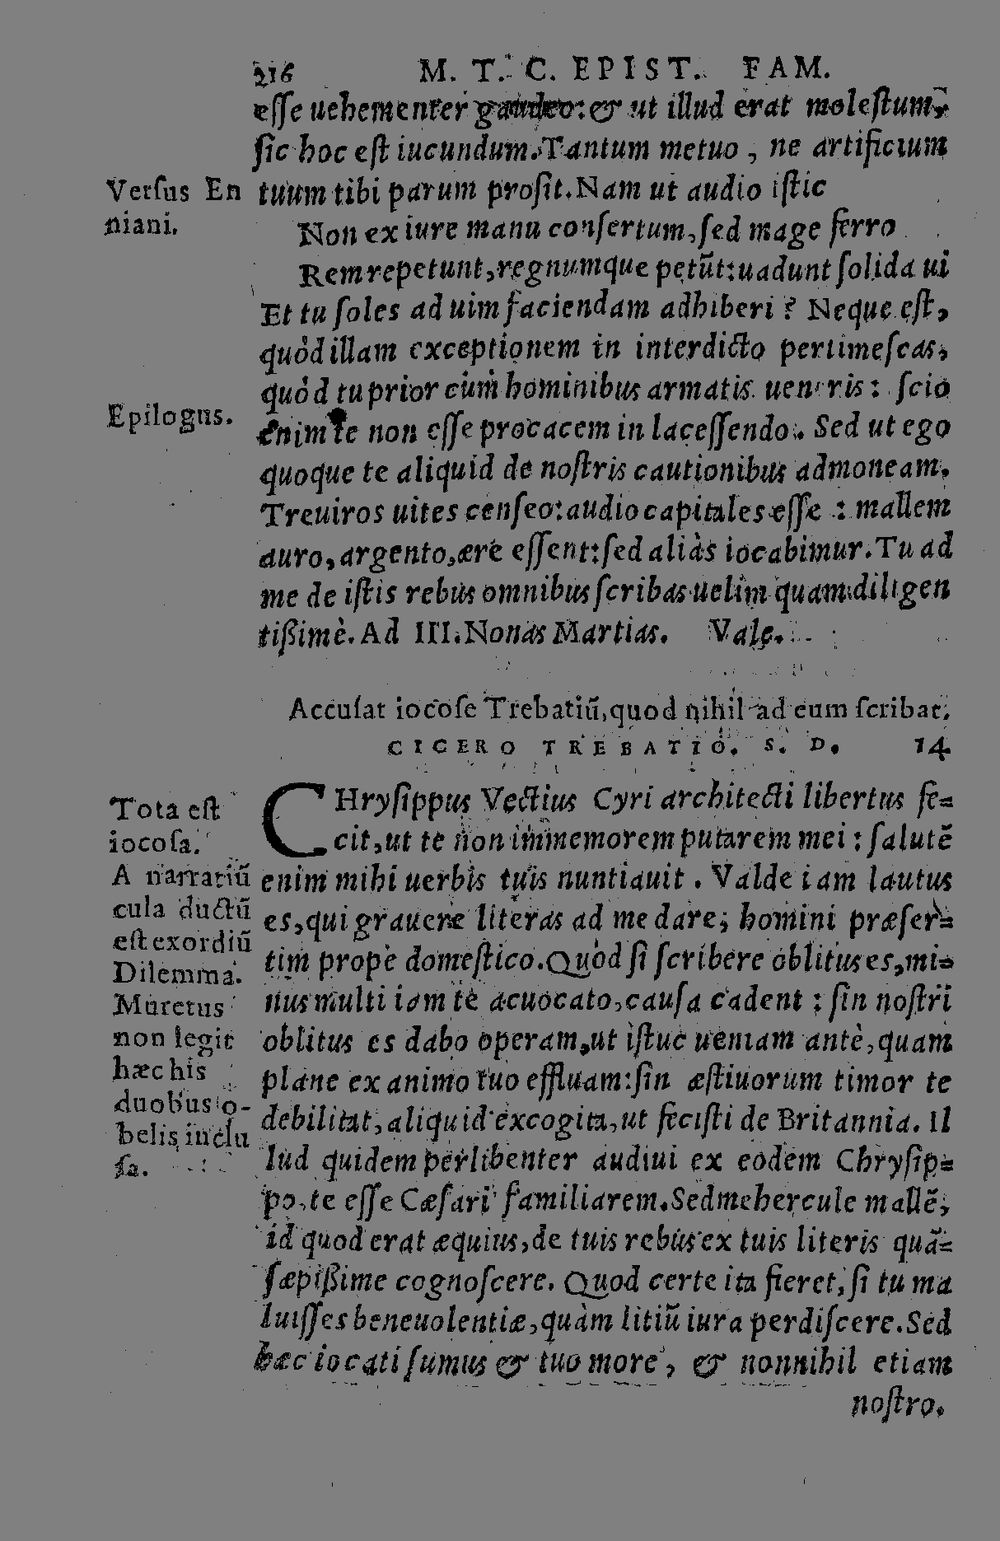 216 M. T. C. EPIST. FAM.
esse uehementer gaudeo: & ut illud erat molestum,
sic hoc est iucundum. Tantum metuo, ne artificium
Versus En
niani.
tuum tibi parum prosit. Nam ut audio istic
Non ex iure manu consertum, sed mage ferro
Rem repetunt, regnumque petūt: uadunt solida ui
Et tu soles ad uim faciendam adhiberi? Neque est,
quòd illam exceptionem in interdicto pertimescas,
quòd tu prior cùm hominibus armatis ueneris: scio
Epilogus.
enim te non esse procacem in lacessendo. Sed ut ego
quoque te aliquid de nostris cautionibus admoneam,
Treuiros uites censeo: audio capitales esse: mallem
auro, argento, ære essent: sed aliàs iocabimur. Tu ad
me de istis rebus omnibus scribas uelim quam diligen
tißimè. Ad III. Nonas Martias. Vale.
Accusat iocose Trebatiū, quod nihil ad eum scribat.
CICERO TREBATIO. S. D. 14
Tota est
iocosa.
A narratiū
cula ductū
est exordiū
Dilemma.
Muretus
non legit
hæc his
duobus o-
belis inclu
sa.
CHrysippus Vectius Cyri architecti libertus fe=
cit, ut te non immemorem putarem mei: salutē
enim mihi uerbis tuis nuntiauit. Valde iam lautus
es, qui grauere literas ad me dare, homini præser=
tim propè domestico. Quòd si scribere oblitus es, mi=
nus multi iam te aduocato, causa cadent: sin nostri
oblitus es dabo operam, ut istuc ueniam antè, quam
plane ex animo tuo effluam: sin æstiuorum timor te
debilitat, aliquid excogita, ut fecisti de Britannia. Il
lud quidem perlibenter audiui ex eodem Chrysip=
po, te esse Cæsari familiarem. Sed mehercule mallē,
id quod erat æquius, de tuis rebus ex tuis literis quā=
sæpißime cognoscere. Quod certe ita fieret, si tu ma
luisses beneuolentiæ, quàm litiū iura perdiscere. Sed
hæc iocati sumus & tuo more, & nonnihil etiam
nostro.